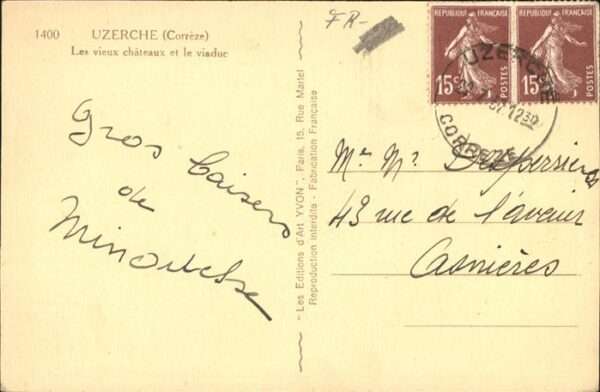 1400 UZERCHE (Corrèze)
Les vieux châteaux et le viaduc
FR-
RÉPUBLIQUE FRANÇAISE
15c POSTES
RÉPUBLIQUE FRANÇAISE
15c POSTES
UZERCHE
12 30
CORRÈZE
Gros baisers
de
"Les Editions d'Art YVON", Paris, 15, Rue Martel
Reproduction interdite - Fabrication Française
43 rue de l'avenir
Asnières